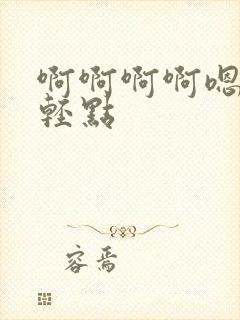 啊啊啊啊嗯
輕點
容焉